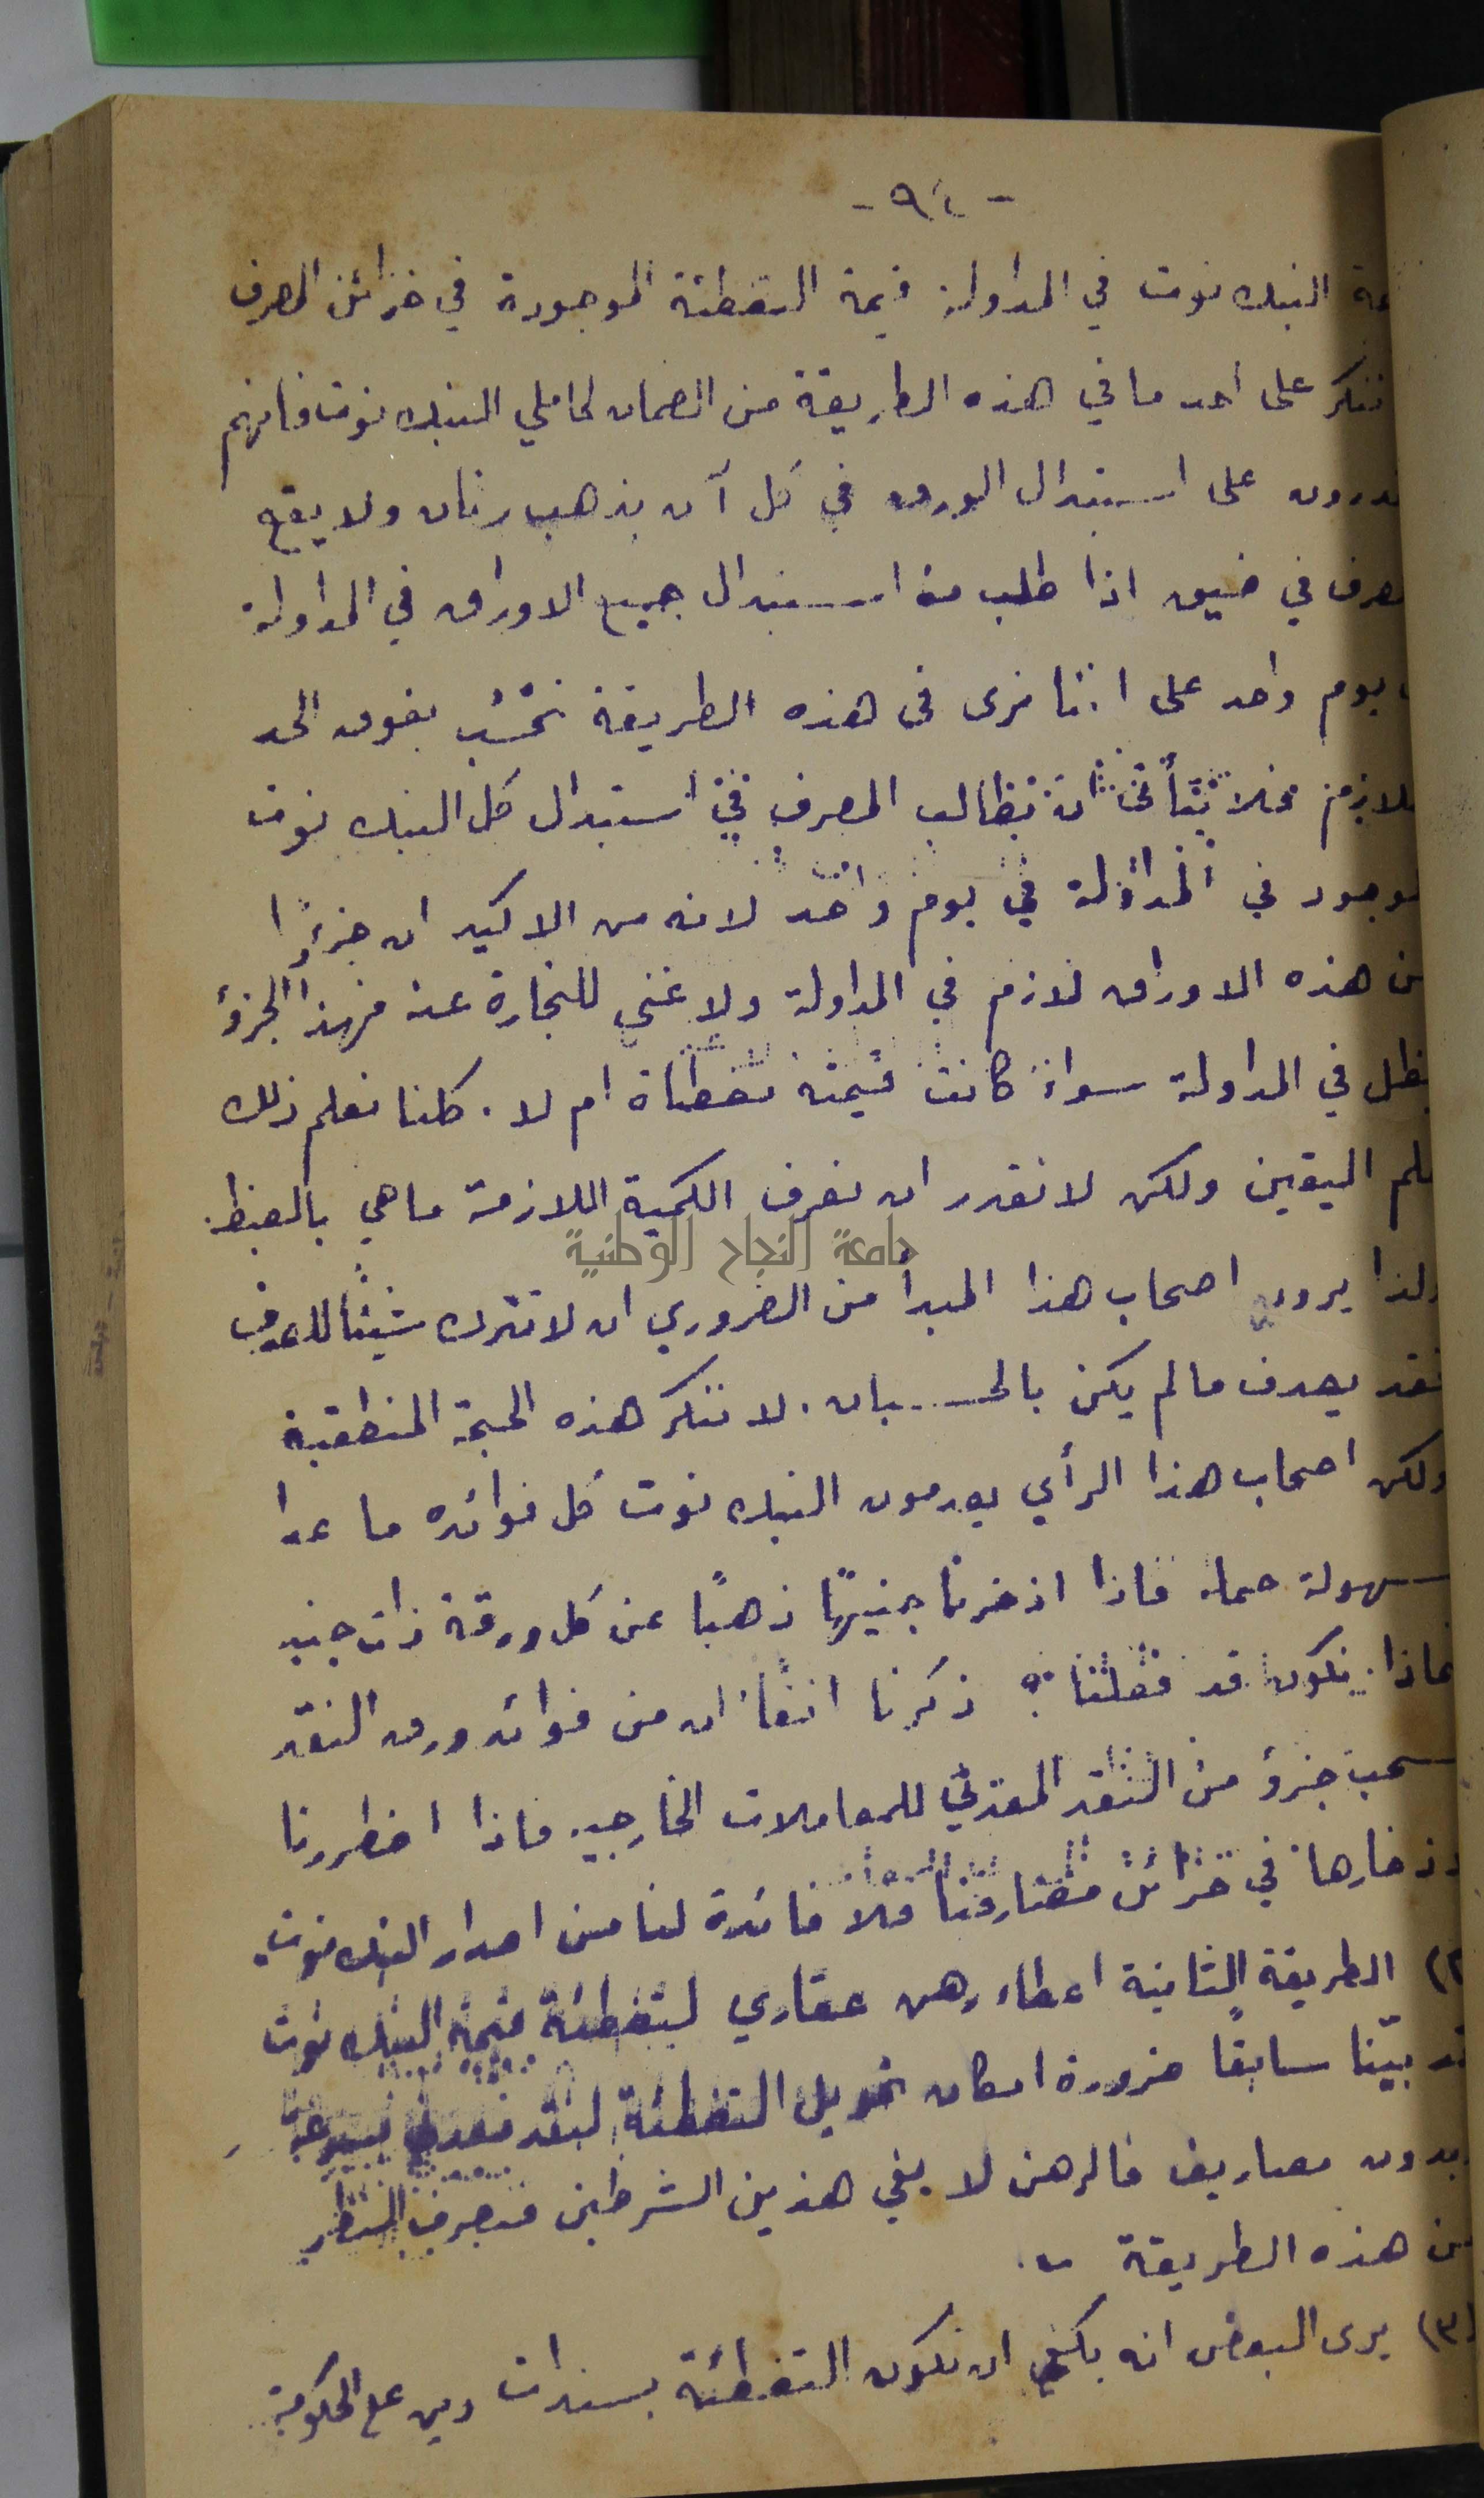 - ٩٤ -
البنك نوت في المداولة قيمة التغطئة الموجودة في خزائن المصرف
ننكر على احد ما في هذه الطريقة من الضمان لحاملي البنك نوت فانهم
على استبدال الورق في كل آن بذهب رنان ولا يقع
في ضيق اذا طلب منه استبدال جميع الاوراق في المداولة
يوم واحد على اننا نرى في هذه الطريقة تحسّب بفوق الحد
فلا يتأتى ان يطالب المصرف في استبدال كل البنك نوت
في المداولة في يوم واحد لانه من الاكيد ان جزءًا
هذه الاوراق لازم في المداولة ولا غنى للتجارة عنه فهذا الجزؤ
في المداولة سواء كانت قيمته مغطاة ام لا . كلنا نعلم ذلك
اليقين ولكن لا نقدر ان نعرف الكمية اللازمة ما هي بالضبط .
جامعة النجاح الوطنية
ولذا يرون اصحاب هذا المبدأ من الضروري ان لا نترك شيئًا للصدف
فقد يصدف ما لم يكن بالحسبان . لا ننكر هذه الحجة المنطقية
ولكن اصحاب هذا الرأي يعدمون البنك نوت كل فوائده ما عدا
سهولة حمله فاذا اذخرنا جنيهًا ذهبًا عن كل ورقة ذات جنيه
فماذا نكون قد فعلنا ؟ ذكرنا انفًا ان من فوائد ورق النقد
سحب جزؤ من النقد المعدني للمعاملات الخارجيه فاذا اضطررنا
في خزائن مصارفنا فلا فائدة لنا من اصدار البنك نوت .
٢) الطريقة الثانية اعطاء رهن عقاري لتغطئة قيمة البنك نوت
قد بيّنا سابقًا ضرورة امكان تحويل التغطئة لنقد معدني
وبدون مصاريف فالرهن لا يفي هذين الشرطين فنصرف النظر
من هذه الطريقة .
(٣) يرى البعض انه يكفي ان تكون التغطئة بسندات دين على الحكومة